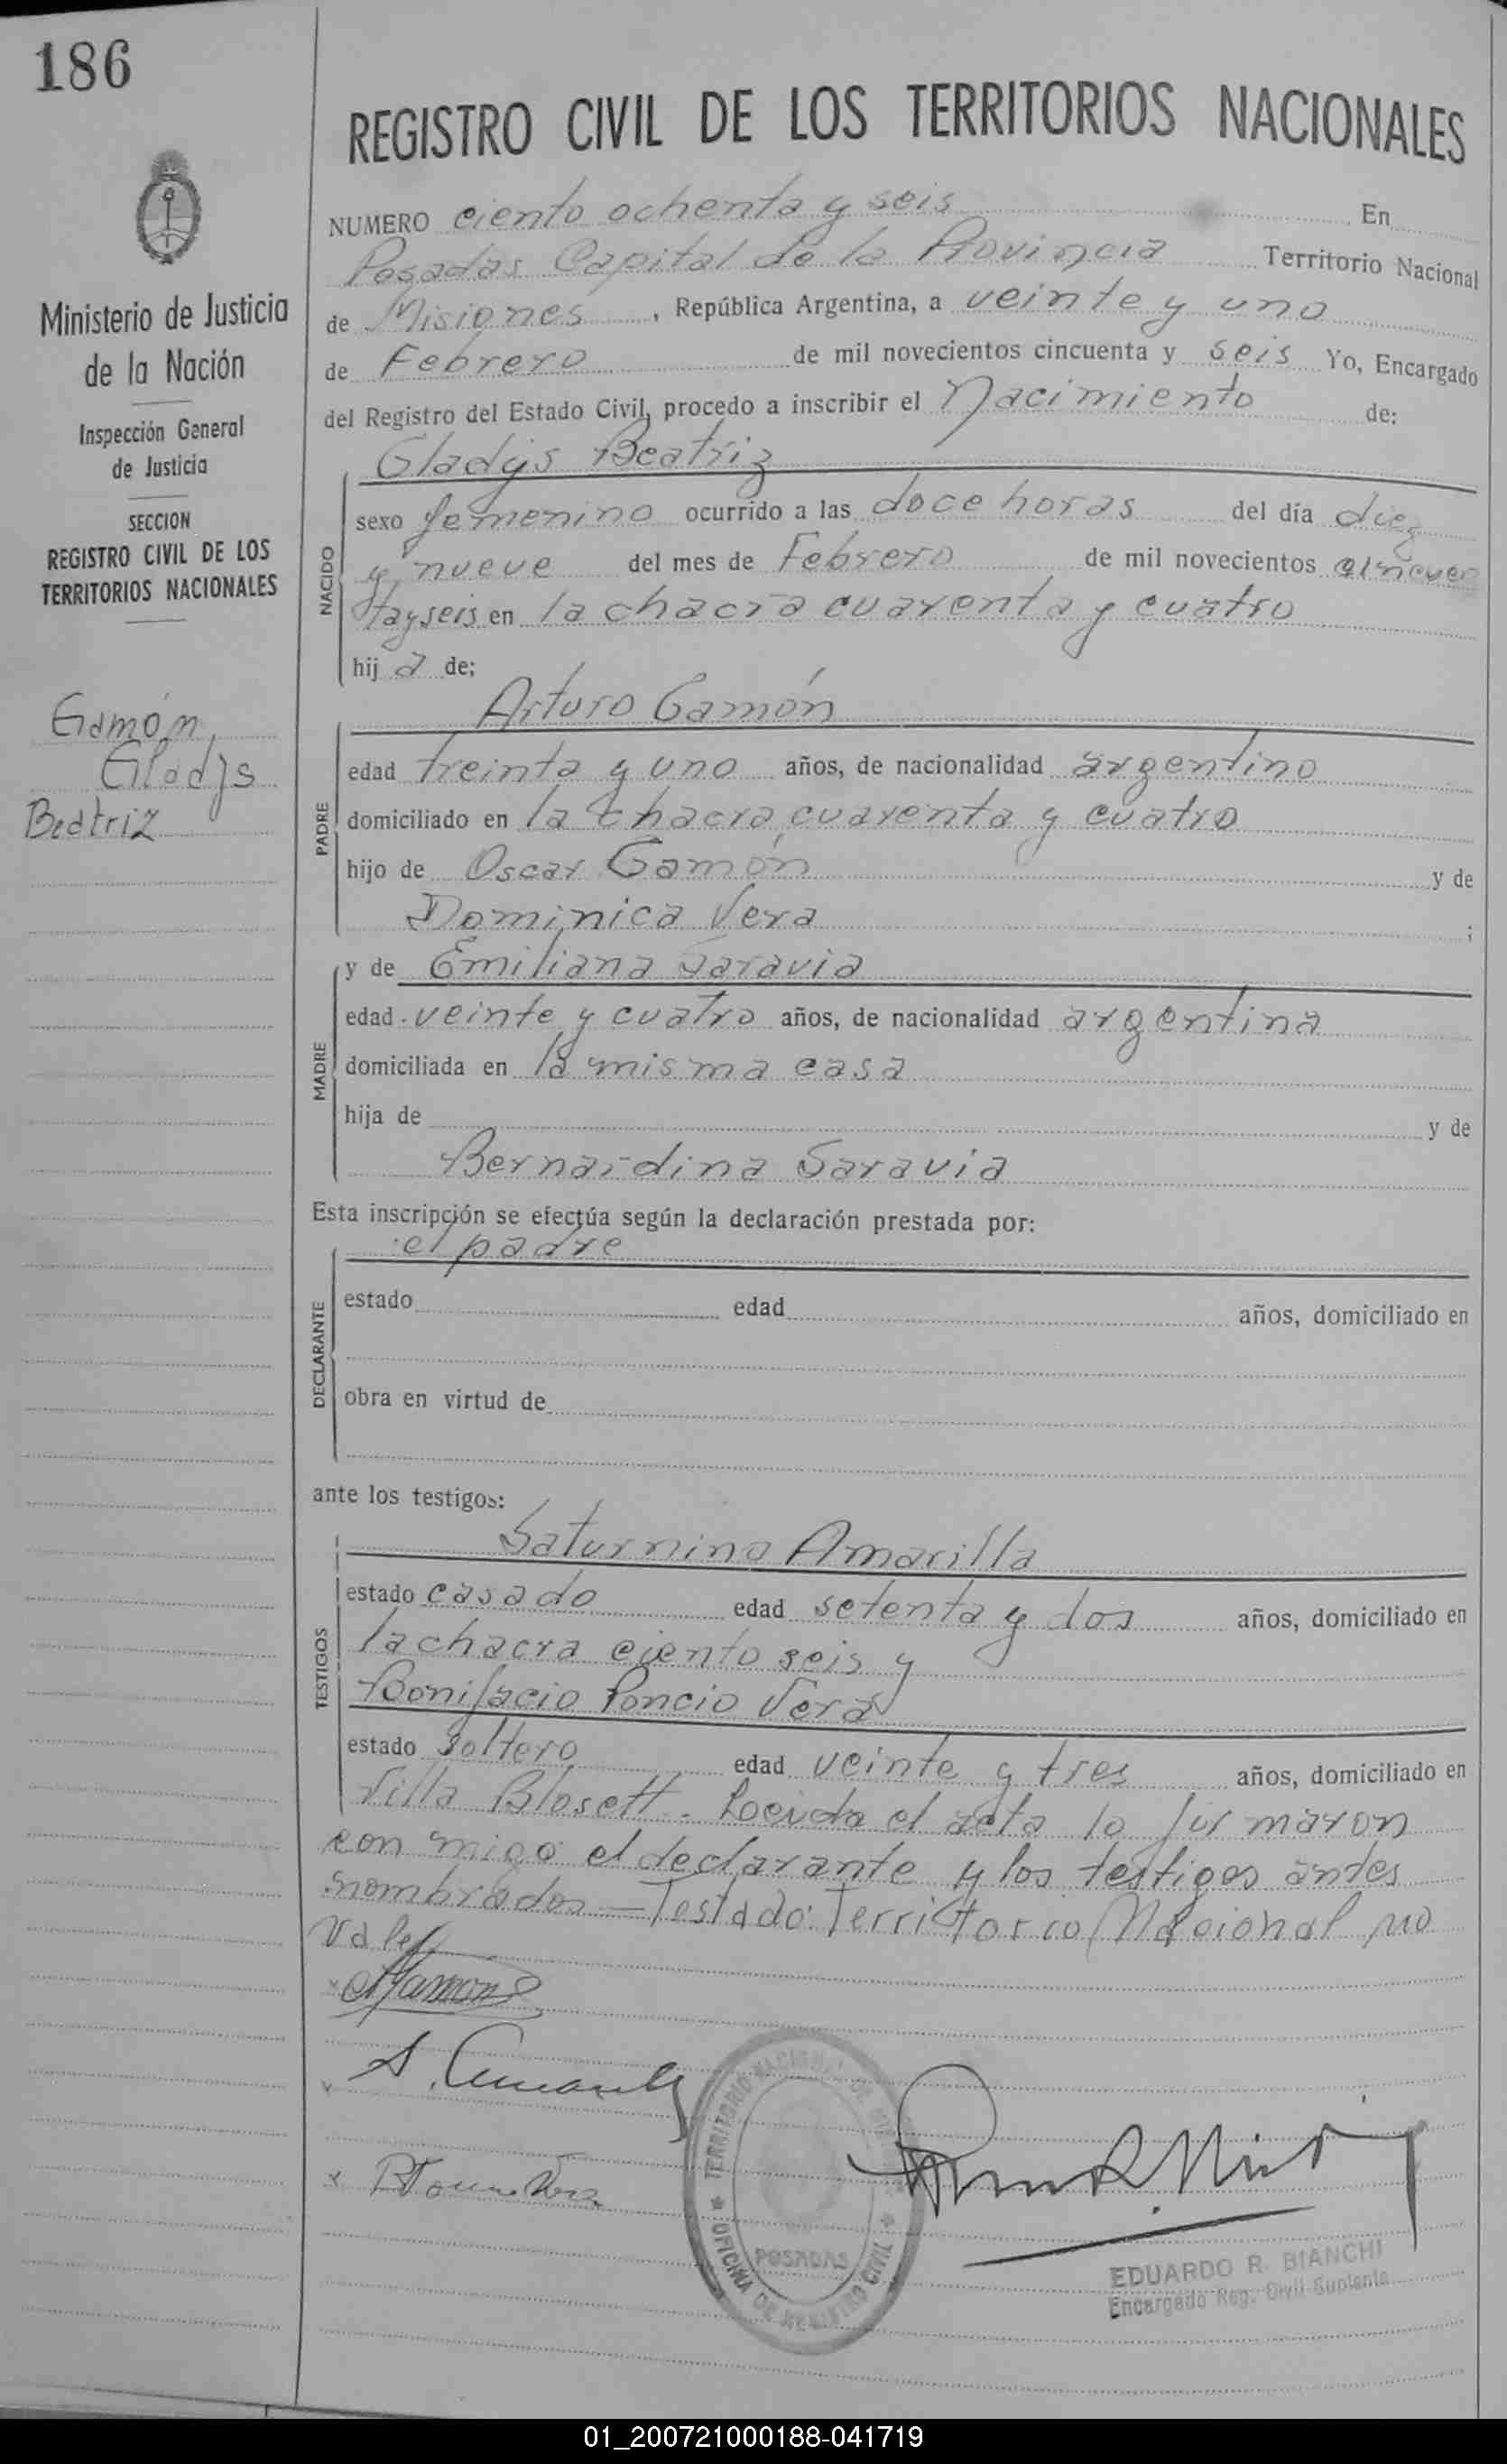 186
REGISTRO CIVIL DE LOS TERRITORIOS NACIONALES
Ministerio de Justicia
de la Nación
Inspección General
de Justicia
SECCION
REGISTRO CIVIL DE LOS
TERRITORIOS NACIONALES
Gamón,
Gladys
Beatriz
NUMERO ciento ochenta y seis En
Posadas Capital de la Provincia Territorio Nacional
de Misiones, República Argentina, a veinte y uno
de Febrero de mil novecientos cincuenta y seis Yo, Encargado
del Registro del Estado Civil, procedo a inscribir el Nacimiento de:
Gladys Beatriz
NACIDO
sexo femenino ocurrido a las doce horas del día diez
y nueve del mes de Febrero de mil novecientos cincuen
tayseis en la chacra cuarenta y cuatro
hija de;
Arturo Gamón
PADRE
edad treinta y uno años, de nacionalidad argentino
domiciliado en la chacra cuarenta y cuatro
hijo de Oscar Gamón y de
Dominica Vera ;
MADRE
y de Emiliana Saravia
edad veinte y cuatro años, de nacionalidad argentina
domiciliada en la misma casa
hija de y de
Bernardina Saravia
Esta inscripción se efectúa según la declaración prestada por:
el padre
DECLARANTE
estado edad años, domiciliado en
obra en virtud de
ante los testigos:
Saturnino Amarilla
TESTIGOS
estado casado edad setenta y dos años, domiciliado en
la chacra ciento seis y
Bonifacio Poncio Vera
estado soltero edad veinte y tres años, domiciliado en
Villa Blosett. Leida el acta la firmaron
con migo el declarante y los testigos antes
nombrados — Testado: Territorio Nacional no
vale
TERRITORIO NACIONAL DE
OFICINA DE REGISTRO CIVIL
POSADAS
EDUARDO R. BIANCHI
Encargado Reg. Civil Suplente
01_200721000188-041719